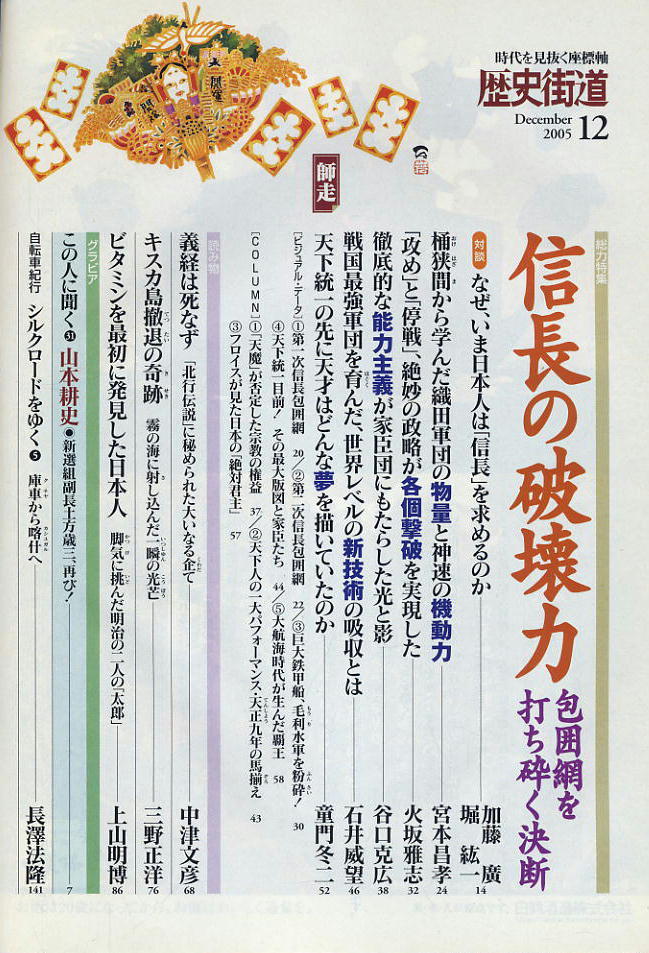 時代を見抜く座標軸
歴史街道
December
2005 12
師走
総力特集
信長の破壊力
包囲網を
打ち砕く決断
対談 なぜ、いま日本人は「信長」を求めるのか 加藤 廣 堀 紘一 14
桶狭間から学んだ織田軍団の物量と神速の機動力 宮本昌孝 24
「攻め」と「停戦」、絶妙の政略が各個撃破を実現した 火坂雅志 32
徹底的な能力主義が家臣団にもたらした光と影 谷口克広 38
戦国最強軍団を育んだ、世界レベルの新技術の吸収とは 石井威望 46
天下統一の先に天才はどんな夢を描いていたのか 童門冬二 52
[ビジュアル・データ]①第一次信長包囲網 20/②第二次信長包囲網 22/③巨大鉄甲船、毛利水軍を粉砕! 30
④天下統一目前! その最大版図と家臣たち 44/⑤大航海時代が生んだ覇王 58
[COLUMN]①「天魔」が否定した宗教の権益 37/②天下人の一大パフォーマンス・天正九年の馬揃え 43
③フロイスが見た日本の「絶対君主」 57
読み物
義経は死なず 「北行伝説」に秘められた大いなる企て 中津文彦 68
キスカ島撤退の奇跡 霧の海に射し込んだ、一瞬の光芒 三野正洋 76
ビタミンを最初に発見した日本人 脚気に挑んだ明治の二人の「太郎」 上山明博 86
グラビア
この人に聞く 31 山本耕史●新選組副長土方歳三、再び! 7
自転車紀行 シルクロードをゆく 5 庫車から喀什へ 長澤法隆 141